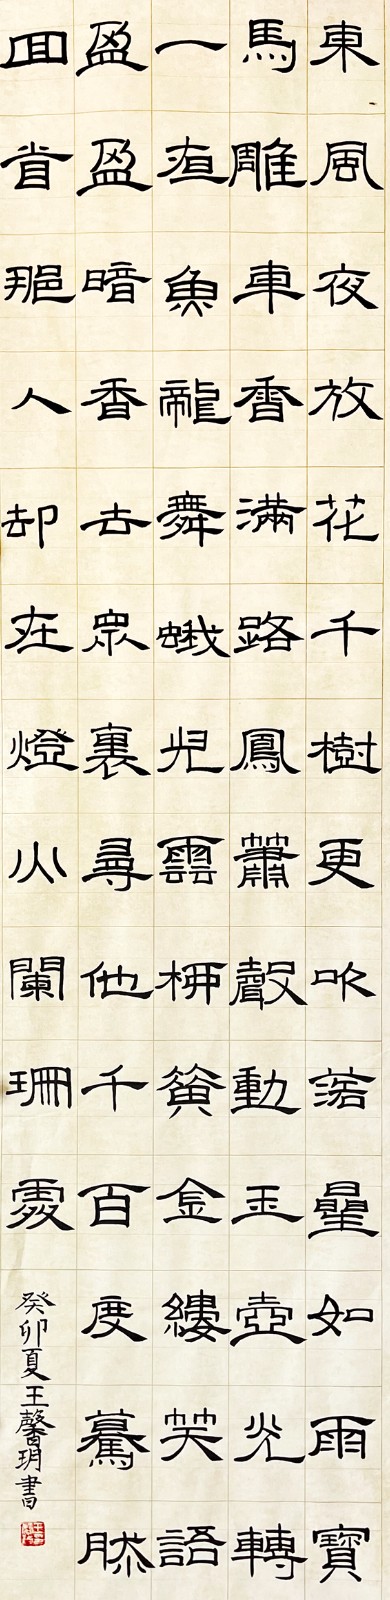 東風夜放花千樹更吹落星如雨寶
馬雕車香滿路鳳簫聲動玉壺光轉
一夜魚龍舞蛾兒雪柳黃金縷笑語
盈盈暗香去眾裏尋他千百度驀然
回首那人却在燈火闌珊處
癸卯夏王馨玥書